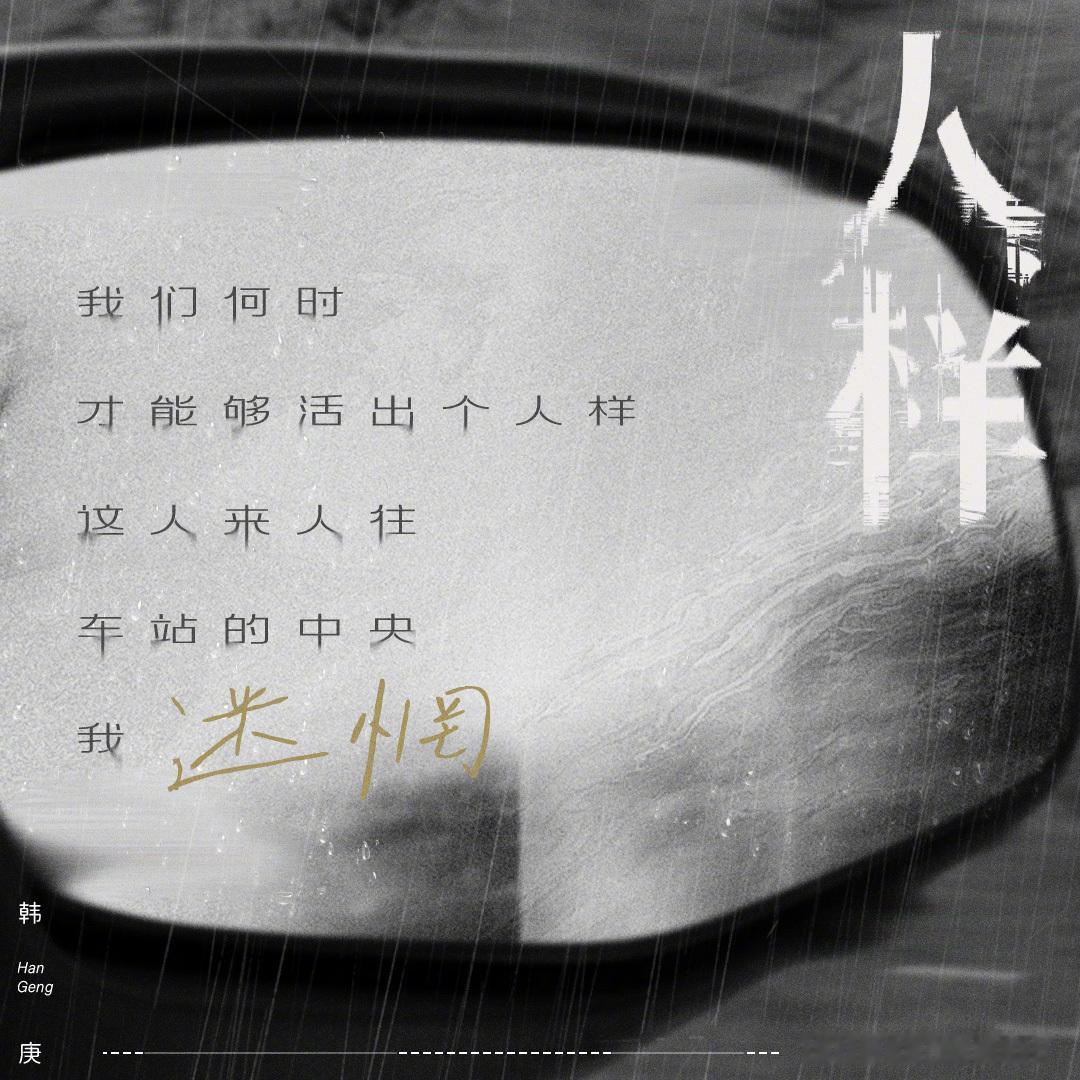 人样
我们何时
才能够活出个人样
这人来人往
车站的中央
我迷惘
韩
Han
Geng
庚